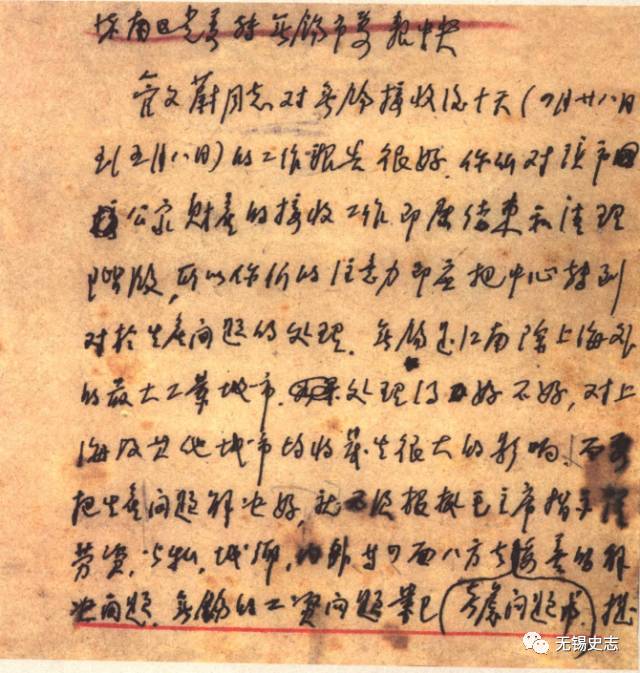 苏南区党委转无锡市委报中央
管文蔚同志对无锡接收后十天（四月廿八日
到五月八日）的工作报告很好，你们对该市
公家财产的接收工作即应结束和清理
阶段，所以你们的注意力即应把中心转到
对于生产问题的处理。无锡是江南除上海外
的最大工业城市，处理得好不好，对上
海及其他城市的收发生很大的影响，而要
把生产问题解决好，就必须根据毛主席指示
劳资，公私，城乡，内外等四面八方的解
决问题，无锡的工资问题业已
无锡史志